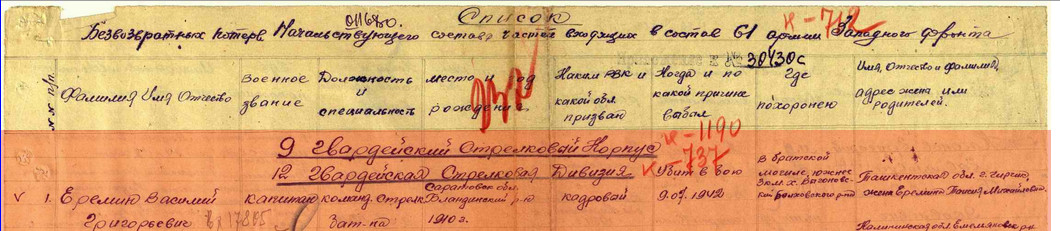 Список
Безвозвратных потерь Начальствующего состава частей входящих в состав 61 армии Западного фронта
011680.
К-712
30430с
№ № п/п.
Фамилия Имя Отчество
Военное
звание
Должность
и
специальность
место и год
рождения.
Каким РВК и
какой обл.
призван
Когда и по
какой причине
выбыл
где
похоронен
Имя, Отчество и Фамилия,
адрес жены или
родителей.
9 Гвардейский Стрелковый Корпус
К-1190
12 Гвардейская Стрелковая Дивизия
К-737
1. Еремин Василий
Григорьевич
капитан
команд. Стрелк
бат-на
Саратовск. обл.
р-н
1910 г.
кадровой
Убит в бою
9.07.1942
В братской
могиле, южнее
3км. х.
р-на
Ташкентская обл. г.
жена Еремина Михайловна.
Калининская обл. р-н